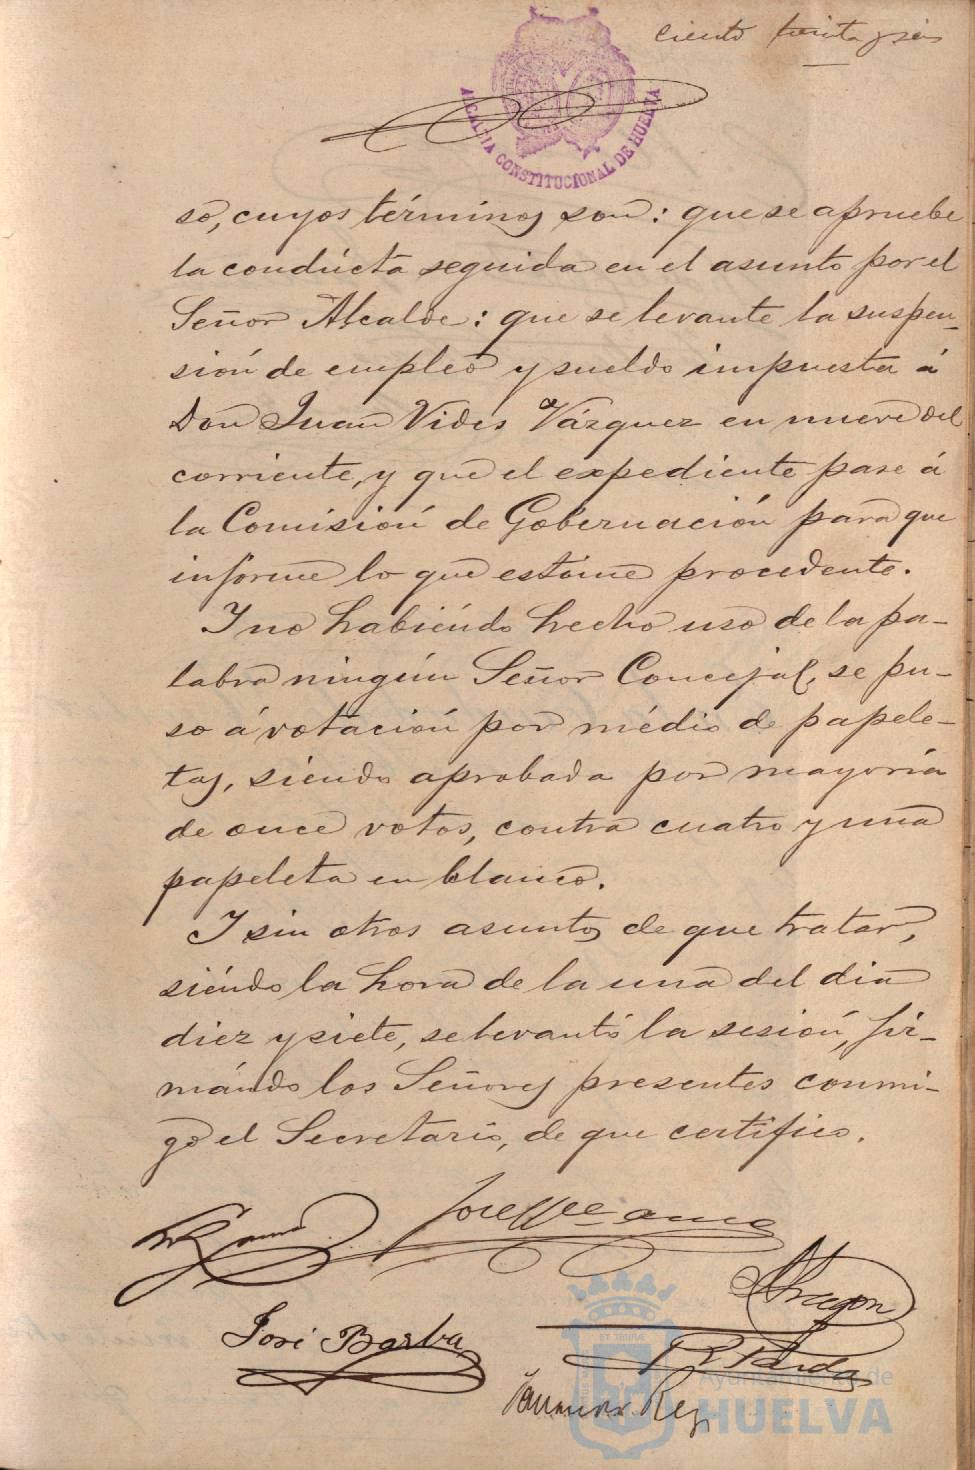 ciento treinta y seis
ALCALDIA CONSTITUCIONAL DE HUELVA
so, cuyos términos son: que se apruebe
la condúcta seguida en el asunto por el
Señor Alcalde: que se levante la suspen-
sión de empleo y sueldo impuesta á
Don Juan Vides Vázquez en nueve del
corriente, y que el expediente pase á
la Comisión de Gobernación para que
informe lo que estime procedente.
Y no habiéndo hecho uso de la pa-
labra ningún Señor Concejal, se pu-
so á votación por médio de papele-
tas, siendo aprobada por mayoría
de once votos, contra cuatro y una
papeleta en blanco.
Y sin otros asuntos de que tratar,
siéndo la hora de la una del dia
diez y siete, se levantó la sesión, fir-
mándo los Señores presentes conmi-
go el Secretario, de que certifico.
José
Aragon
José Barba
R. Parda
Rey
Ayuntamiento de
HUELVA